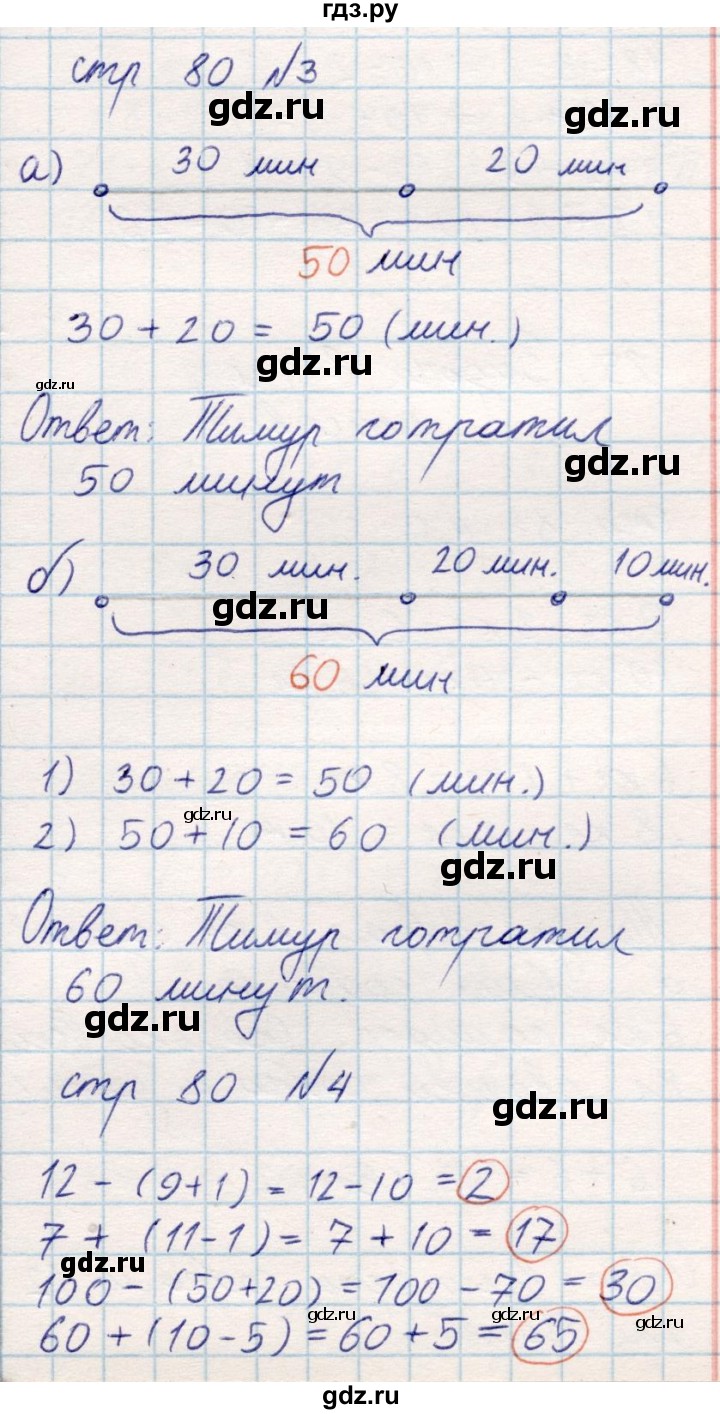 гдз.ру
стр 80 №3
gdz.ru
gdz.ru
а) 30 мин 20 мин
50 мин
30 + 20 = 50 (мин.)
gdz.ru
gdz.ru
Ответ: Тимур потратил
gdz.ru
50 минут
б) 30 мин. 20 мин. 10 мин.
gdz.ru
60 мин
1) 30 + 20 = 50 (мин.)
gdz.ru
2) 50 + 10 = 60 (мин.)
gdz.ru
Ответ: Тимур потратил
60 минут.
gdz.ru
стр 80 №4
gdz.ru
12 - (9+1) = 12-10 = 2
7 + (11-1) = 7 + 10 = 17
gdz.ru
100 - (50+20) = 100 - 70 = 30
gdz.ru
gdz.ru
60 + (10-5) = 60 + 5 = 65
gdz.ru
gdz.ru
gdz.ru